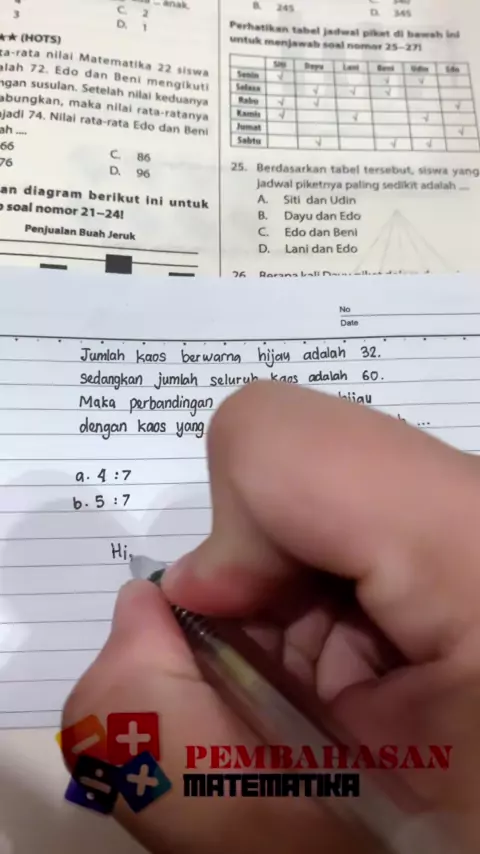 anak.
3
C. 2
D. 1
B. 245
D. 345
★★ (HOTS)
ta-rata nilai Matematika 22 siswa
alah 72. Edo dan Beni mengikuti
ngan susulan. Setelah nilai keduanya
abungkan, maka nilai rata-ratanya
jadi 74. Nilai rata-rata Edo dan Beni
ah ....
66
C. 86
76
D. 96
an diagram berikut ini untuk
soal nomor 21–24!
Penjualan Buah Jeruk
Perhatikan tabel jadwal piket di bawah ini
untuk menjawab soal nomor 25–27!
Siti Dayu Lani Beni Udin Edo
Senin √ √ √
Selasa √ √ √
Rabu √ √ √
Kamis √ √ √
Jumat √
Sabtu √ √ √
25. Berdasarkan tabel tersebut, siswa yang
jadwal piketnya paling sedikit adalah ....
A. Siti dan Udin
B. Dayu dan Edo
C. Edo dan Beni
D. Lani dan Edo
26.
No
Date
Jumlah kaos berwarna hijau adalah 32.
Sedangkan jumlah seluruh kaos adalah 60.
Maka perbandingan hijau
dengan kaos yang ...
a. 4 : 7
b. 5 : 7
Hi,
PEMBAHASAN
MATEMATIKA